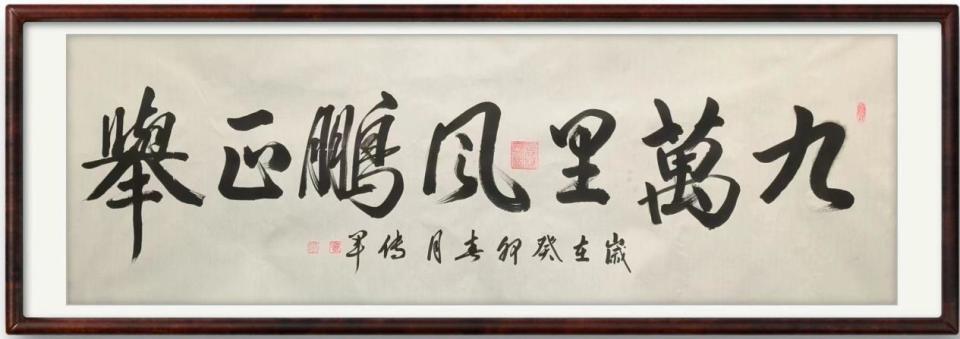 九萬里風鵬正舉
歲在癸卯春月傳軍